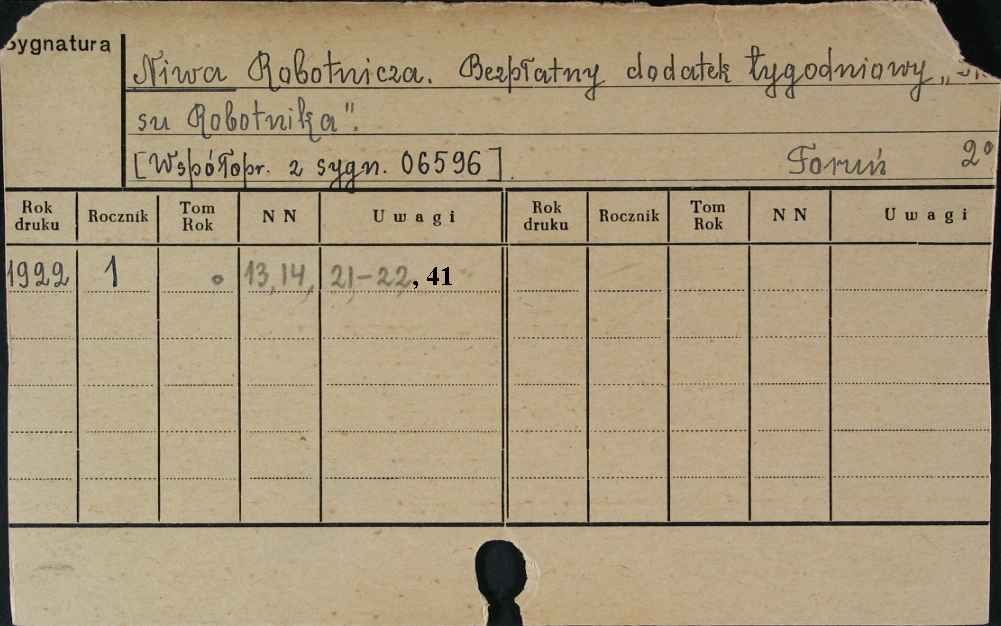 Sygnatura
Niwa Robotnicza. Bezpłatny dodatek tygodniowy „
su Robotnika".
[Współopr. z sygn. 06596]. Toruń 2°
Rok druku Rocznik Tom Rok NN Uwagi Rok druku Rocznik Tom Rok NN Uwagi
1922 1 13, 14, 21-22, 41